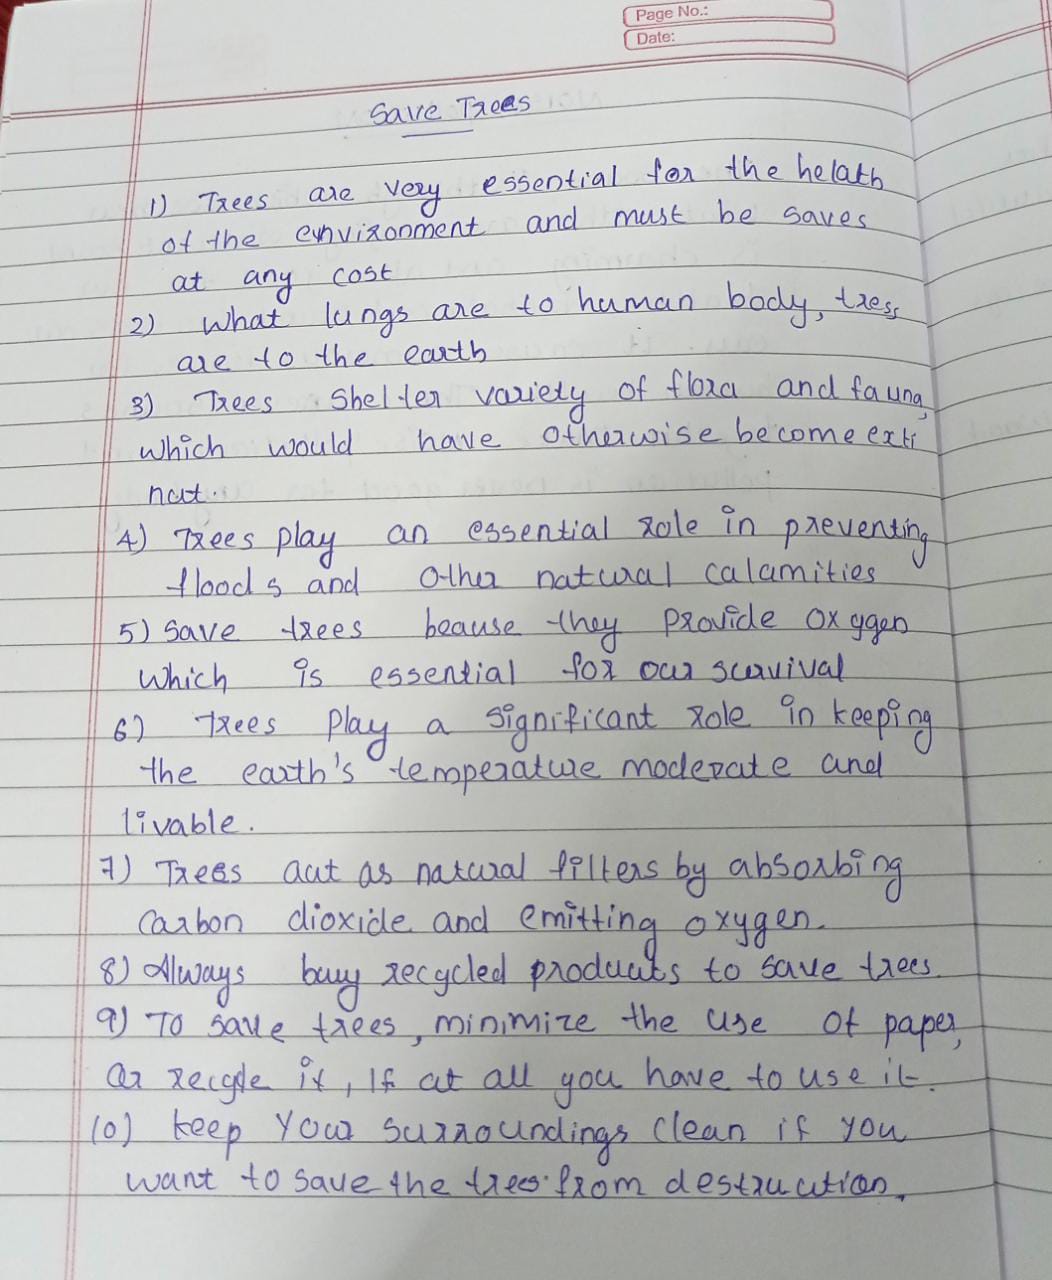 Page No.:
Date:
Save Trees
1) Trees are very essential for the helath
of the environment and must be saves
at any cost
2) What lungs are to human body, tress
are to the earth
3) Trees Shelter variety of flora and fauna,
which would have otherwise become exti
nct.
4) Trees play an essential role in preventing
floods and other natural calamities
5) Save trees beause they provide oxygen
which is essential for our survival
6) Trees play a significant role in keeping
the earth's temperature moderate and
livable.
7) Trees act as natural filters by absorbing
carbon dioxide and emitting oxygen.
8) Always buy recycled products to save trees.
9) To save trees, minimize the use of paper,
or recycle it, If at all you have to use it.
10) keep your surroundings clean if you
want to save the trees from destruction.